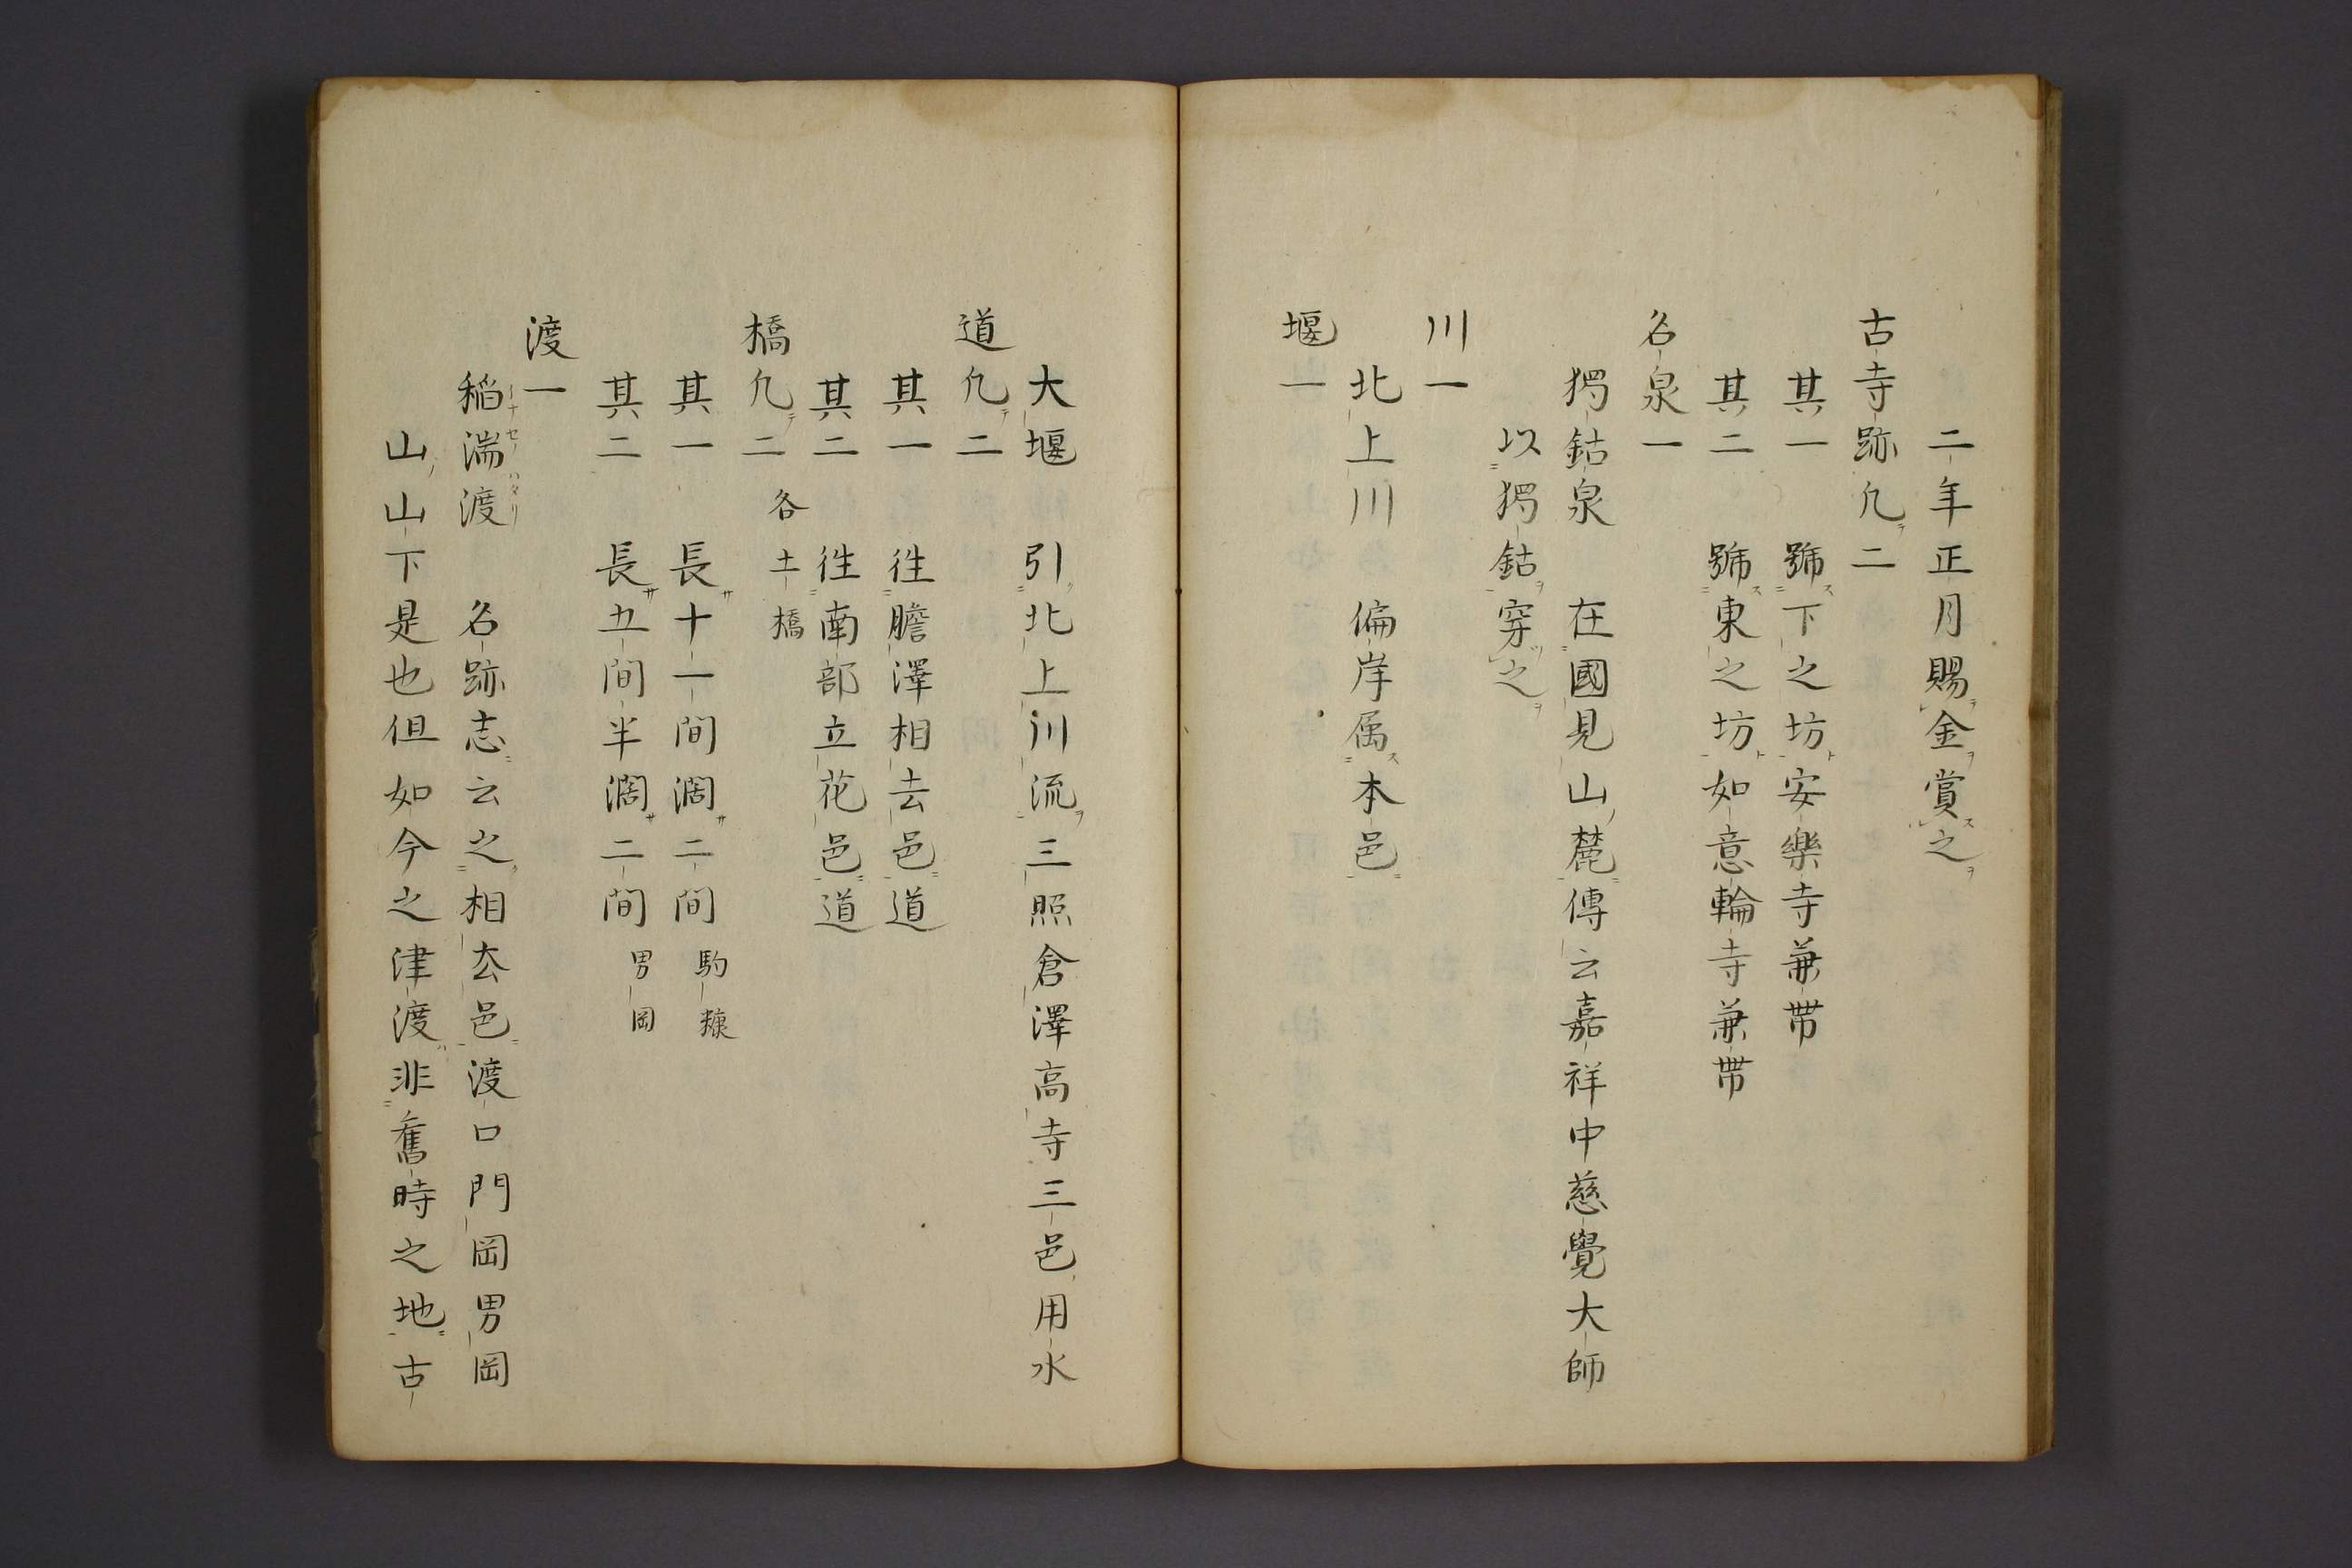 二年正月賜金賞之
古寺跡凢二
其一 號下之坊安樂寺兼帯
其二 號東之坊如意輪寺兼帯
名泉一
獨鈷泉 在國見山麓傳云嘉祥中慈覺大師
以獨鈷穿之
川一
北上川 偏岸属本邑
堰一
大堰 引北上川流三照倉澤高寺三邑用水
道凢二
其一 徃膽澤相去邑道
其二 徃南部立花邑道
橋凢二 各土橋
其一 長十一間濶二間 駒糠
其二 長五間半濶二間 男岡
渡一
稲湍渡 名跡志云之相去邑渡口門岡男岡
山山下是也但如今之津渡非舊時之地古